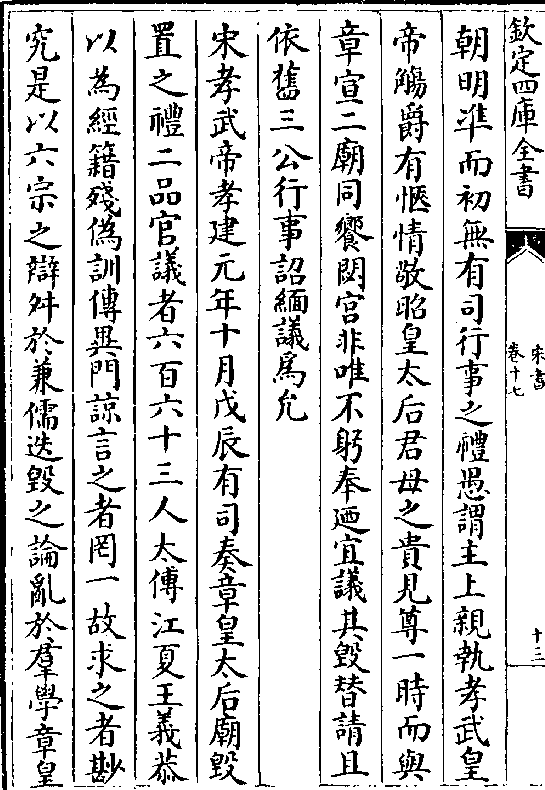 欽定四庫全書
宋書
卷十七
十三
朝明準而初無有司行事之禮愚謂主上親執孝武皇
帝觴爵有愜情敬昭皇太后君母之貴見尊一時而與
章宣二廟同饗閟宫非唯不躬奉廼宜議其毀替請且
依舊三公行事詔緬議爲允
宋孝武帝孝建元年十月戊辰有司奏章皇太后廟毀
置之禮二品官議者六百六十三人太傅江夏王義恭
以為經籍殘偽訓傳異門諒言之者罔一故求之者尠
究是以六宗之辯舛於兼儒迭毀之論亂於羣學章皇